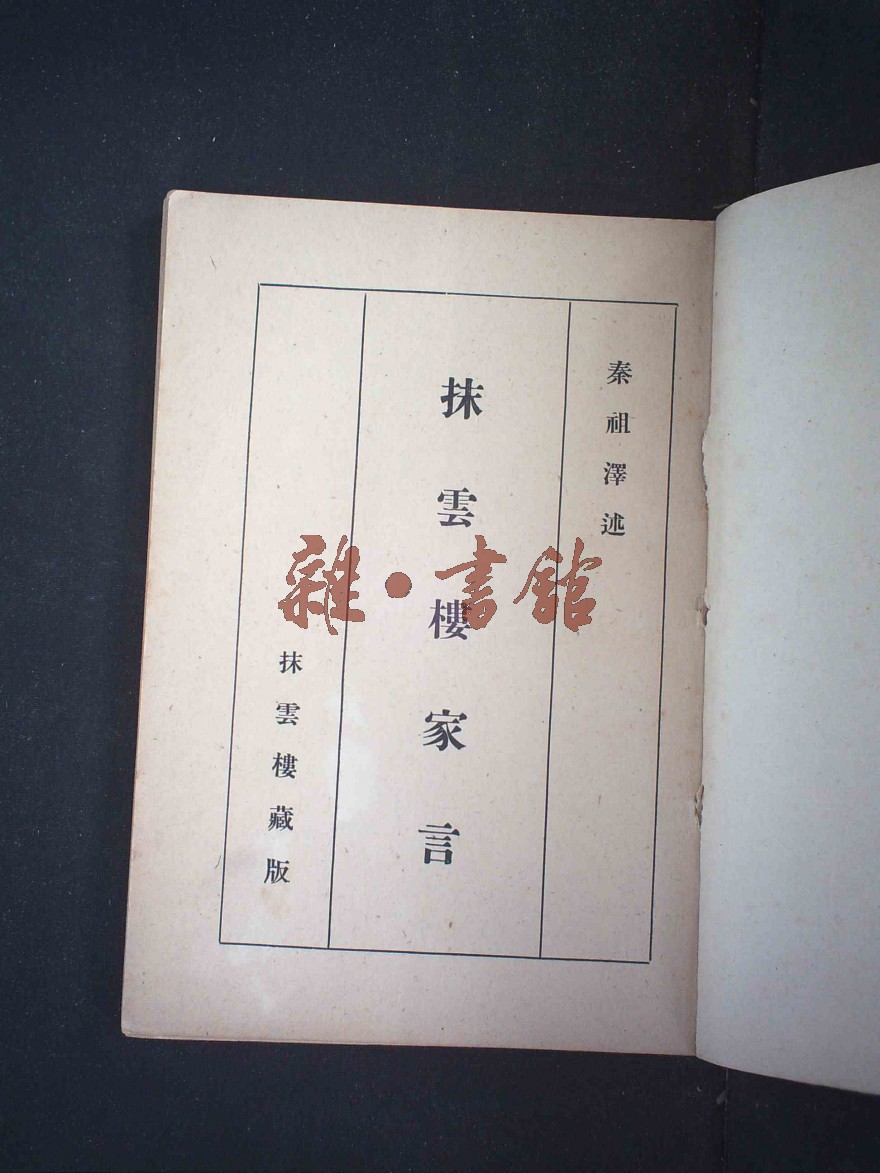 秦祖澤述
抹雲樓家言
抹雲樓藏版
雜·書館